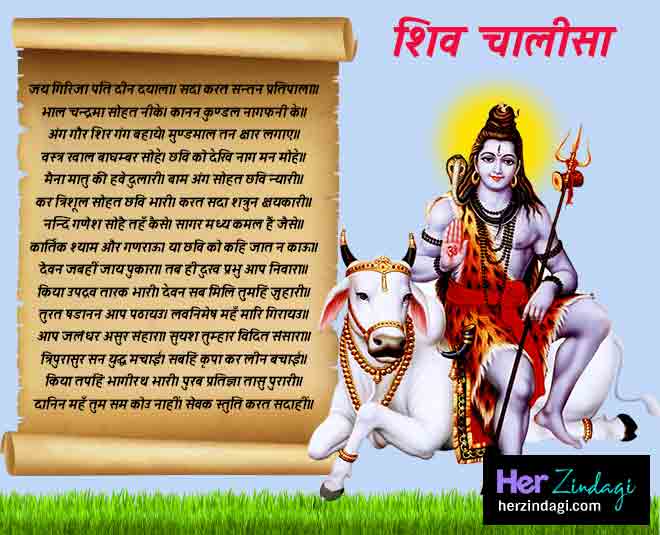 शिव चालीसा
जय गिरिजा पति दीन दयाला। सदा करत सन्तन प्रतिपाला॥
भाल चन्द्रमा सोहत नीके। कानन कुण्डल नागफनी के॥
अंग गौर शिर गंग बहाये। मुण्डमाल तन क्षार लगाए॥
वस्त्र खाल बाघम्बर सोहे। छवि को देखि नाग मन मोहे॥
मैना मातु की हवे दुलारी। बाम अंग सोहत छवि न्यारी॥
कर त्रिशूल सोहत छवि भारी। करत सदा शत्रुन क्षयकारी॥
नन्दि गणेश सोहै तहँ कैसे। सागर मध्य कमल हैं जैसे॥
कार्तिक श्याम और गणराऊ। या छवि को कहि जात न काऊ॥
देवन जबहीं जाय पुकारा। तब ही दुख प्रभु आप निवारा॥
किया उपद्रव तारक भारी। देवन सब मिलि तुमहिं जुहारी॥
तुरत षडानन आप पठायउ। लवनिमेष महँ मारि गिरायउ॥
आप जलंधर असुर संहारा। सुयश तुम्हार विदित संसारा॥
त्रिपुरासुर सन युद्ध मचाई। सबहिं कृपा कर लीन बचाई॥
किया तपहिं भागीरथ भारी। पुरब प्रतिज्ञा तासु पुरारी॥
दानिन महँ तुम सम कोउ नाहीं। सेवक स्तुति करत सदाहीं॥
Her Zindagi
herzindagi.com